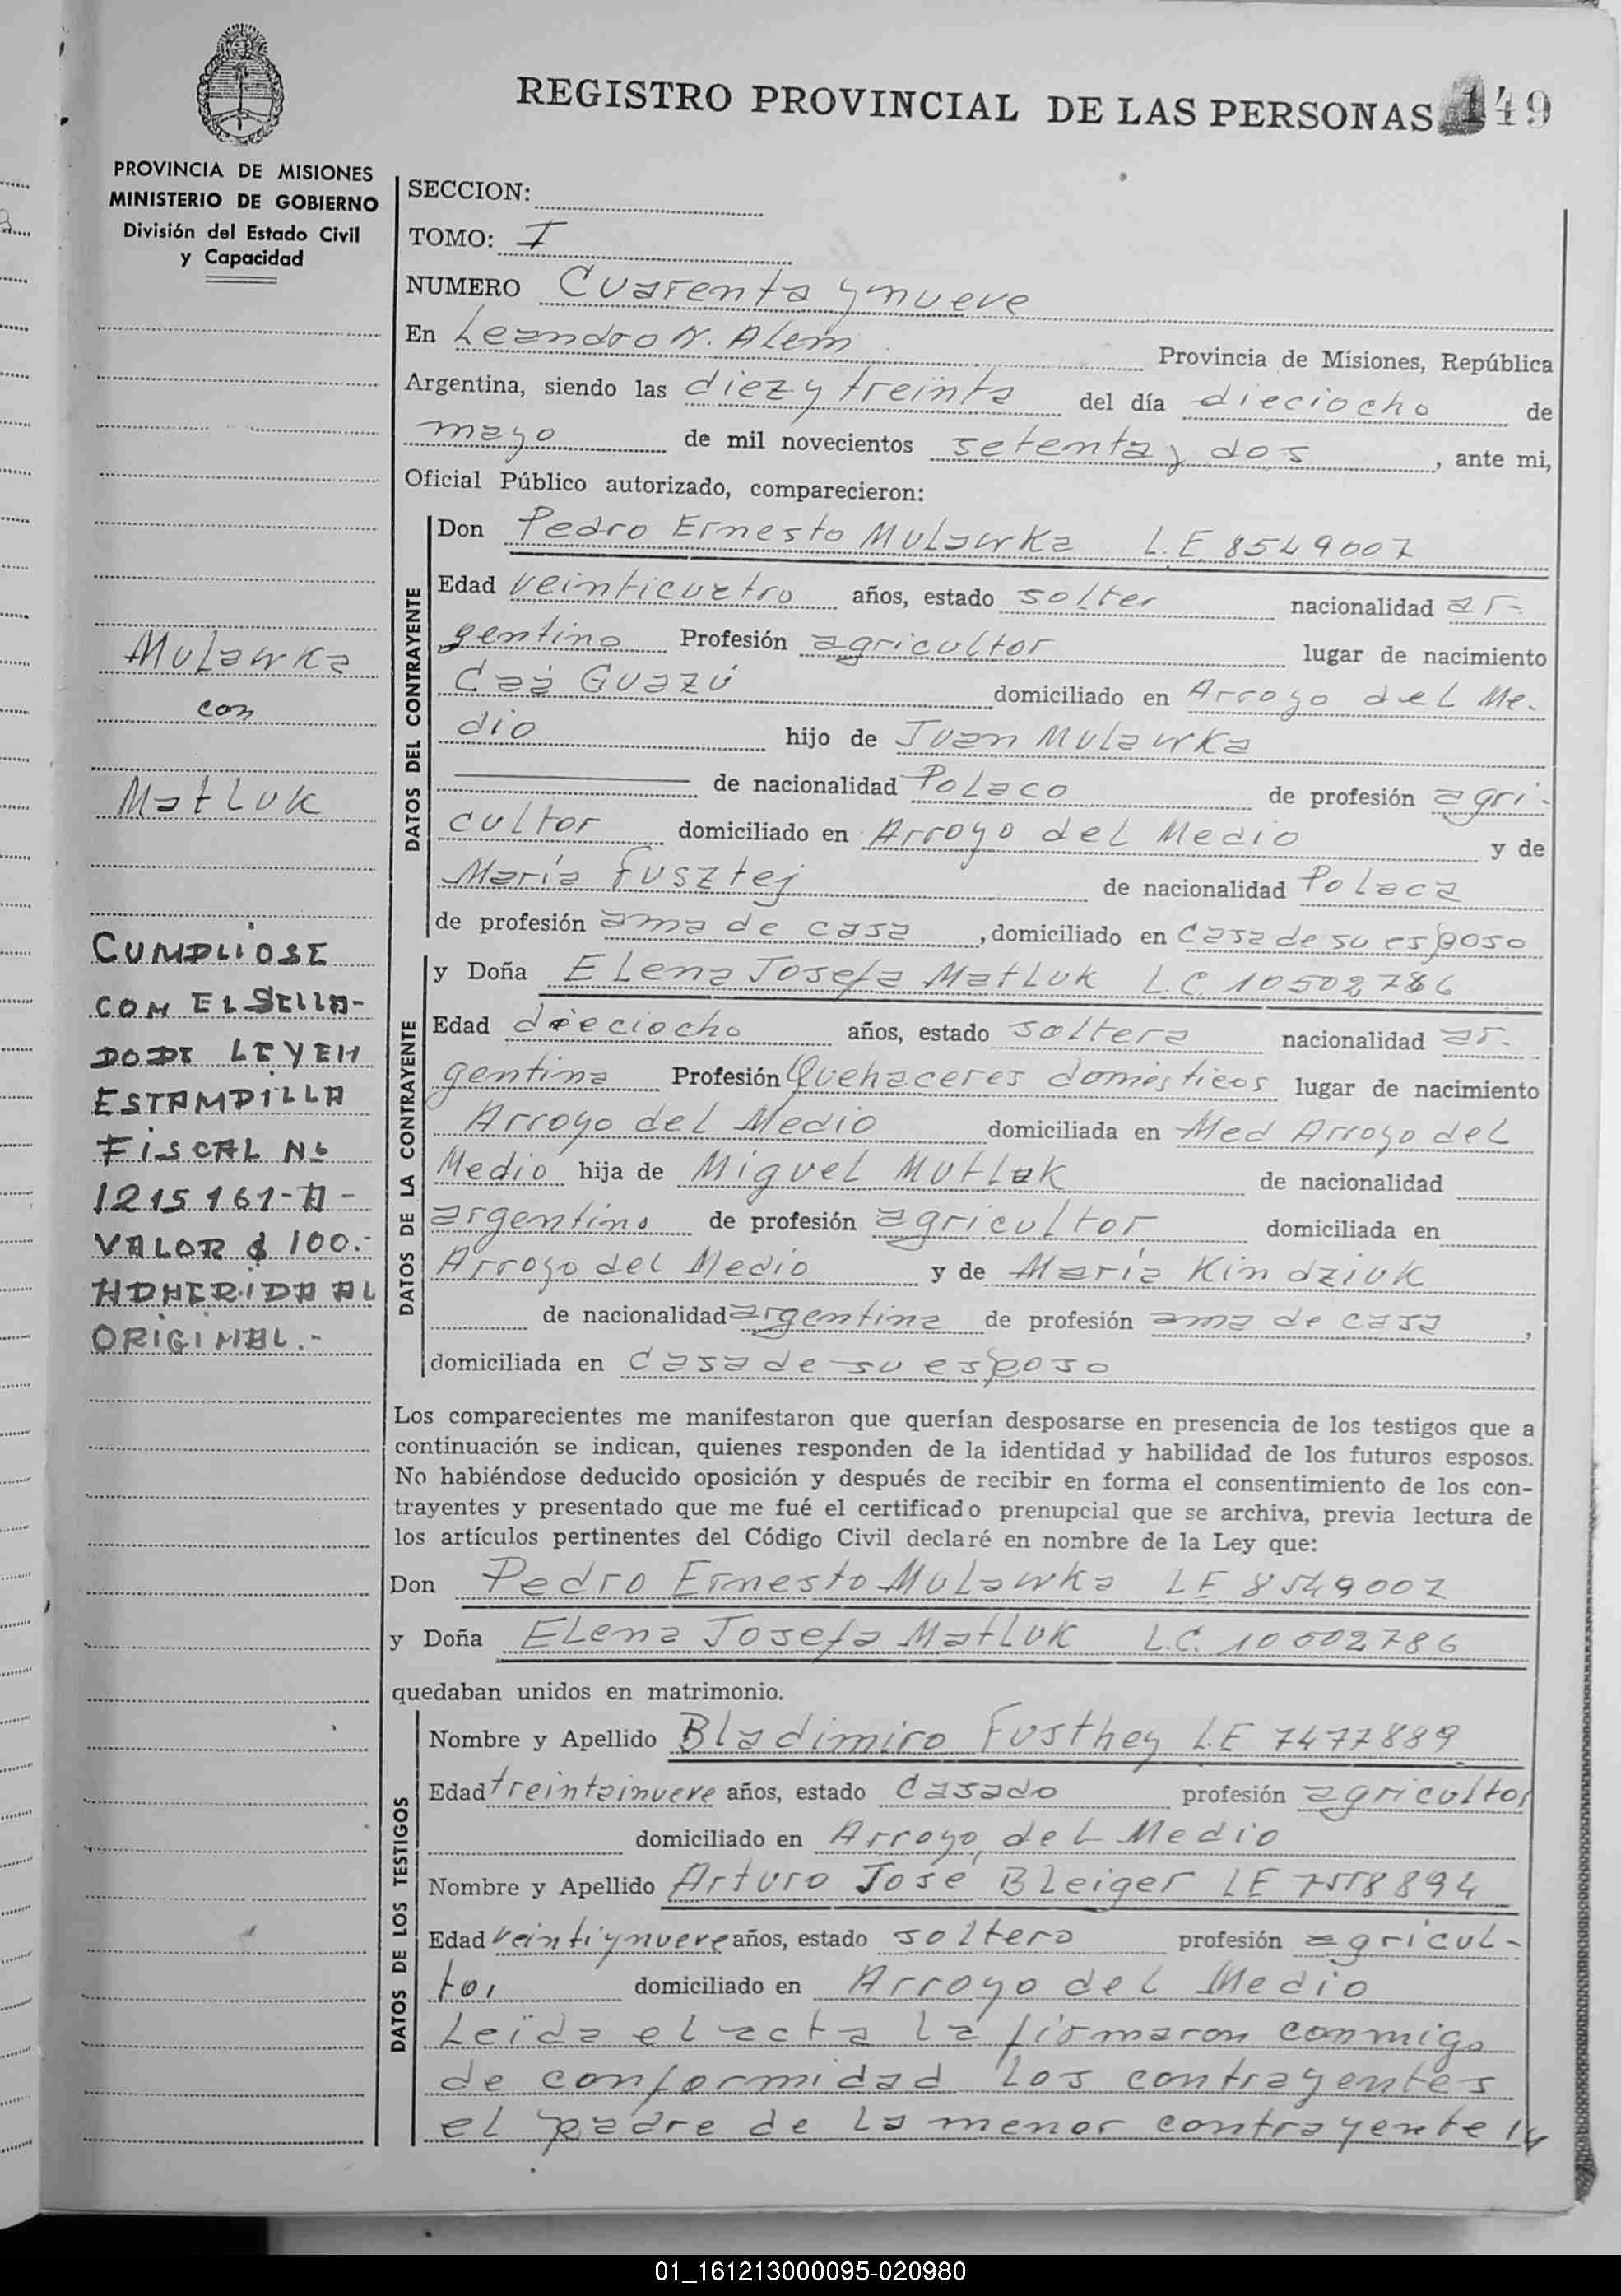 REGISTRO PROVINCIAL DE LAS PERSONAS 149
PROVINCIA DE MISIONES
MINISTERIO DE GOBIERNO
División del Estado Civil
y Capacidad
Mulawka
con
Matluk
CUMPLIOSE
CON EL SELLA-
DO DE LEYEN
ESTAMPILLA
FISCAL No
1215161-A-
VALOR $ 100.-
ADHERIDA AL
ORIGINAL.-
SECCION:
TOMO: I
NUMERO Cuarenta y nueve
En Leandro N. Alem Provincia de Misiones, República
Argentina, siendo las diez y treinta del día dieciocho de
mayo de mil novecientos setenta y dos, ante mi,
Oficial Público autorizado, comparecieron:
DATOS DEL CONTRAYENTE
Don Pedro Ernesto Mulawka L.E 8549007
Edad veinticuatro años, estado solter nacionalidad ar-
gentino Profesión agricultor lugar de nacimiento
Caá Guazú domiciliado en Arroyo del Me-
dio hijo de Juan Mulawka
de nacionalidad Polaco de profesión agri-
cultor domiciliado en Arroyo del Medio y de
María Fusztej de nacionalidad Polaca
de profesión ama de casa, domiciliado en Casa de su esposo
DATOS DE LA CONTRAYENTE
y Doña Elena Josefa Matluk L.C. 10502786
Edad dieciocho años, estado soltera nacionalidad ar-
gentina Profesión Quehaceres domésticos lugar de nacimiento
Arroyo del Medio domiciliada en Med Arroyo del
Medio hija de Miguel Mutluk de nacionalidad
argentino de profesión agricultor domiciliada en
Arroyo del Medio y de María Kindziuk
de nacionalidad argentina de profesión ama de casa,
domiciliada en Casa de su esposo
Los comparecientes me manifestaron que querían desposarse en presencia de los testigos que a
continuación se indican, quienes responden de la identidad y habilidad de los futuros esposos.
No habiéndose deducido oposición y después de recibir en forma el consentimiento de los con-
trayentes y presentado que me fué el certificado prenupcial que se archiva, previa lectura de
los artículos pertinentes del Código Civil declaré en nombre de la Ley que:
Don Pedro Ernesto Mulawka LE 8549007
y Doña Elena Josefa Matluk L.C. 10502786
quedaban unidos en matrimonio.
DATOS DE LOS TESTIGOS
Nombre y Apellido Bladimiro Fusthey LE 7477889
Edad treintainueve años, estado Casado profesión agricultor
domiciliado en Arroyo del Medio
Nombre y Apellido Arturo José Bleiger LE 7558894
Edad veintiynueve años, estado soltero profesión agricul-
tor domiciliado en Arroyo del Medio
Leída el acta la firmaron conmigo
de conformidad los contrayentes
el padre de la menor contrayente y
01_161213000095-020980